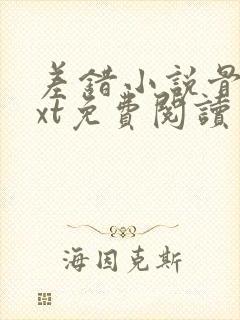 差錯小說骨
xt免費閱讀
海因克斯